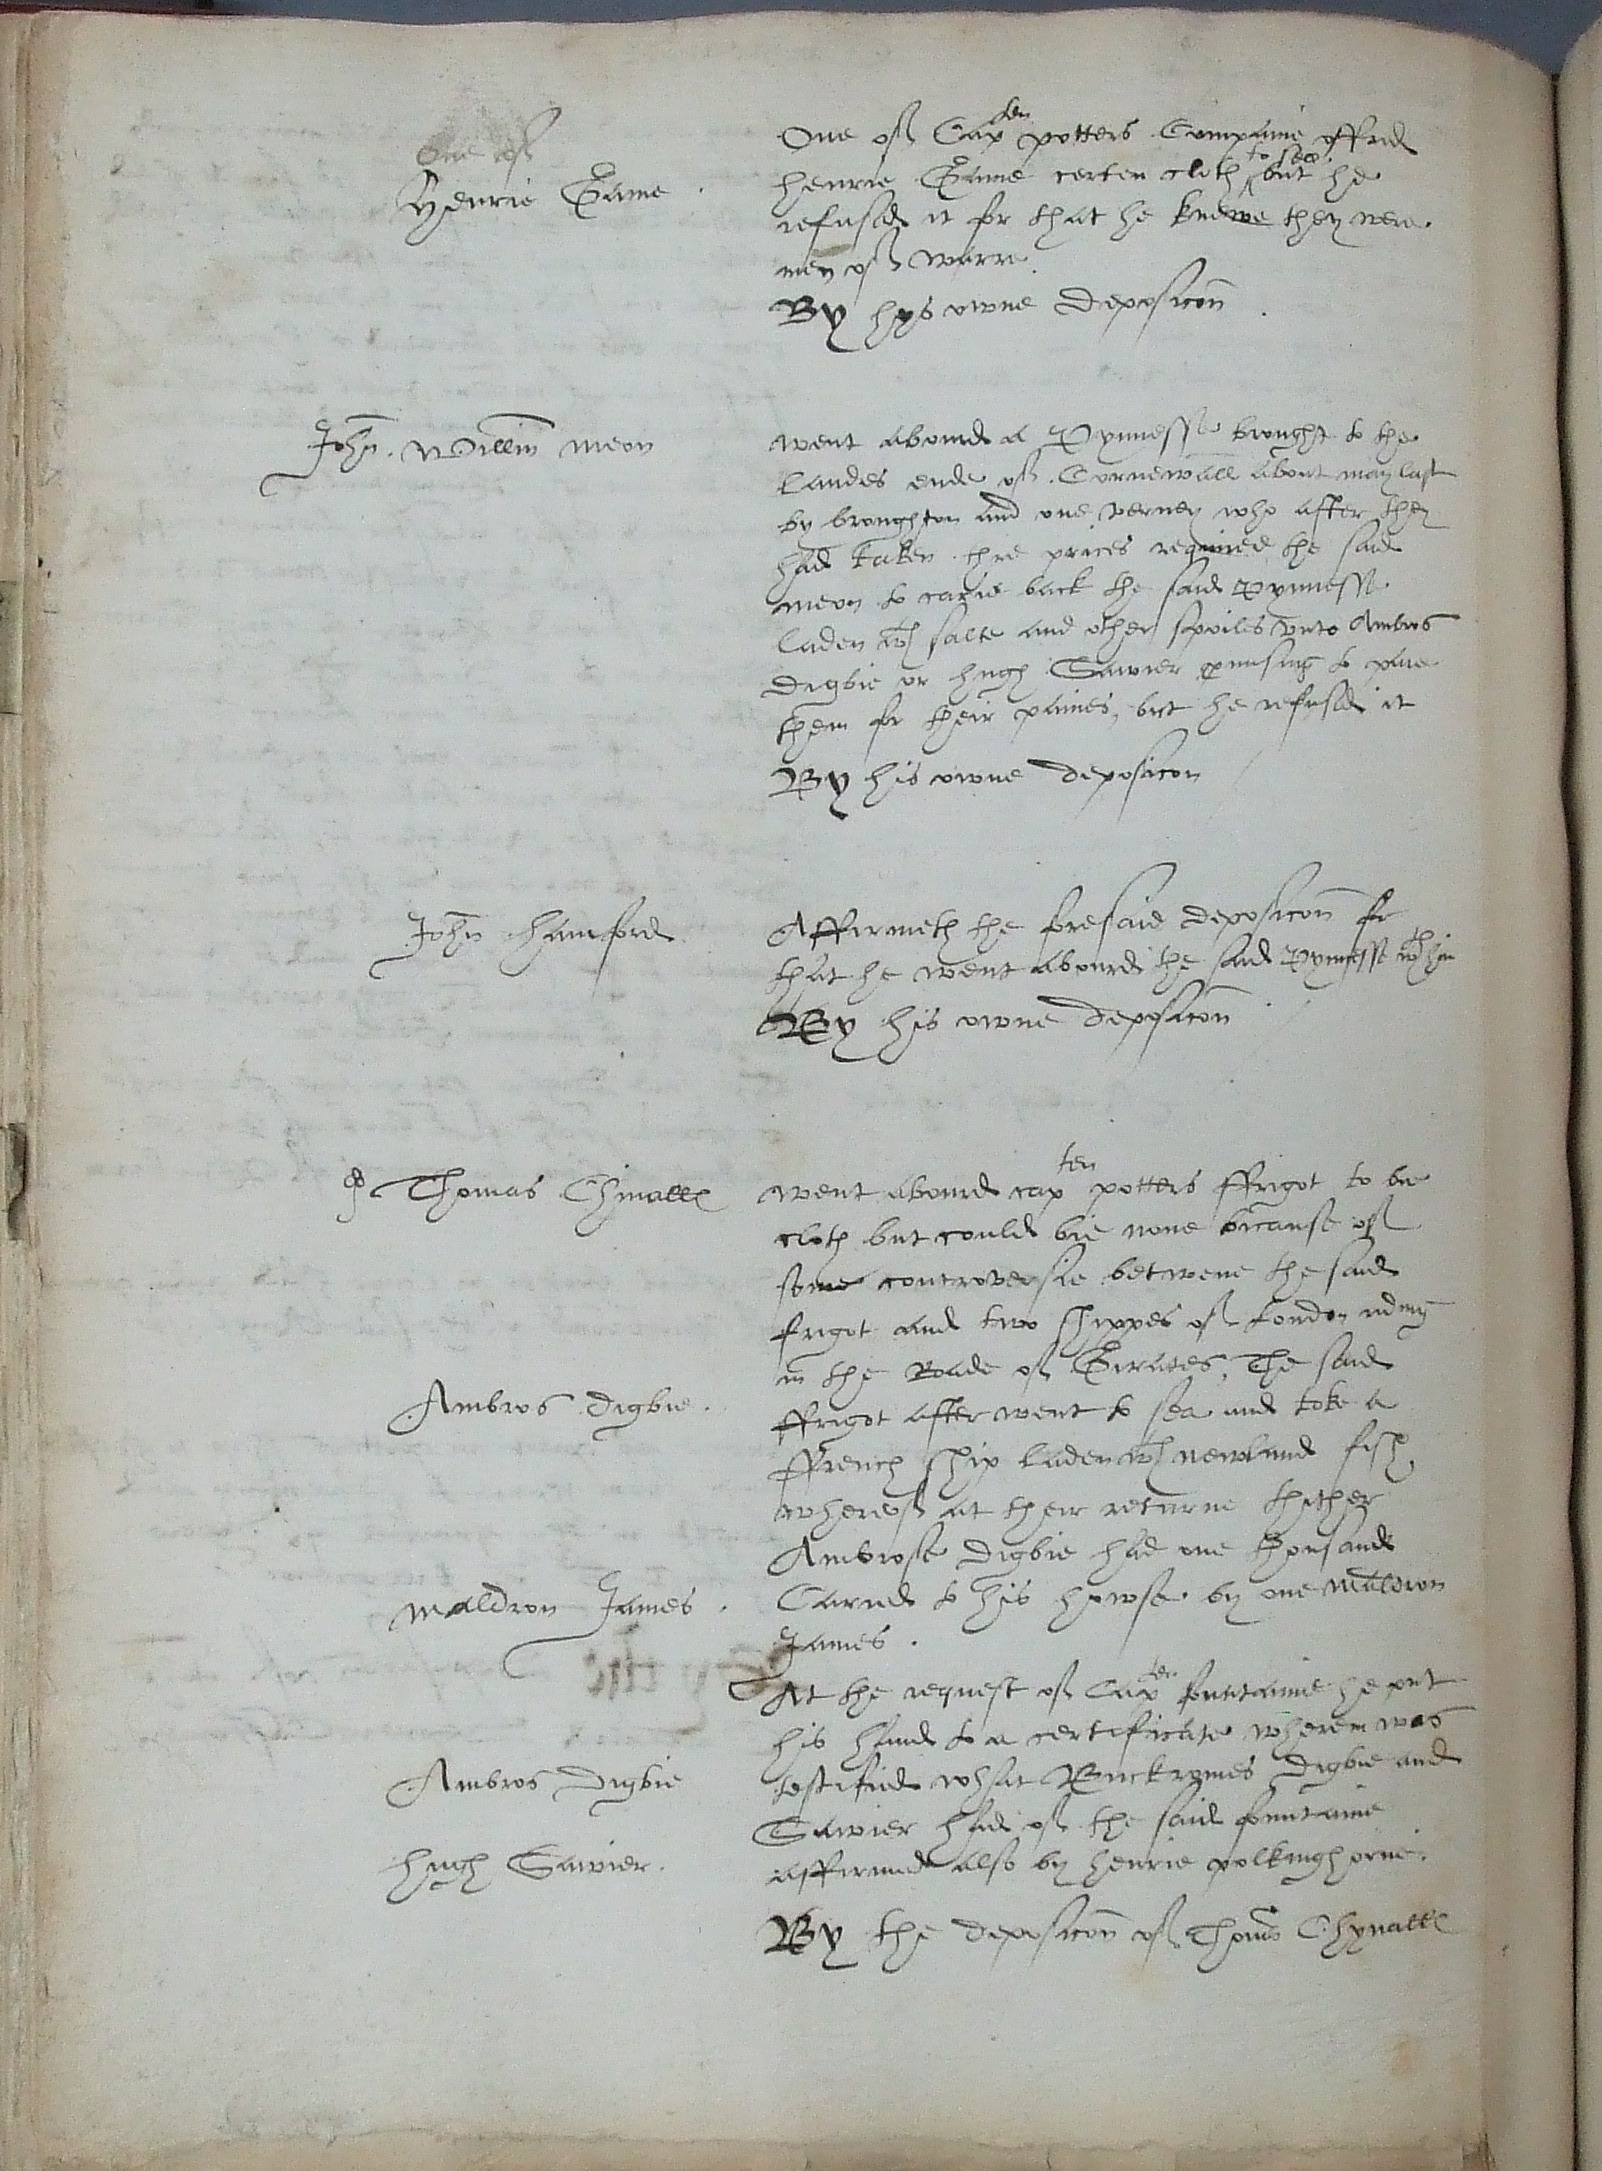 One of
Henrie Game
One of Capten potters Companie offred
henrie Game certen cloth to sell but he
refused it for that he knewe they were
men of warre
By hys owne deposicon
John Willm meon
went abourd a Pynnesse brought to the
Landes ende of Cornewall about may last
by broughton and one verney who after they
had taken thre prices required the said
meon to carie back the said Pynnesse
laden wth salte and other spoiles vnto Ambros
digbie or hugh Gawier promising to paie
them for their paines, but he refused it
By his owne deposicon
John hamford
Affirmeth the foresaid deposicon for
that he went abourd the said Pynnesse wth him
By his owne deposicon
Thomas Chinalls
went abourd capten potters ffrigot to bie
cloth but could bie none bicause of
some controversie betwene the said
frigot and two shippes of London riding
in the Rade of the said
Ambros digbie
ffrigot after went to sea and toke a
ffrench ship laden wth newland fish
whereof at their returne thither
Ambrose digbie had one thousand
maldron James
Caried to his howse by one maldron
James
At the request of Capten fountaine he put
his hand to a certificate wherein was
Ambros digbie
testified what Buckromes digbie and
Gawier had of the said fountaine
hugh Gawier
affirmed also by henrie polkinghorne
By the deposicon of Thoms Chynalls